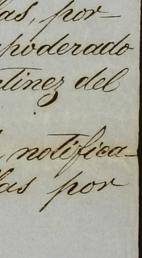 las, por-
poderado
tinez del
notifica-
las por